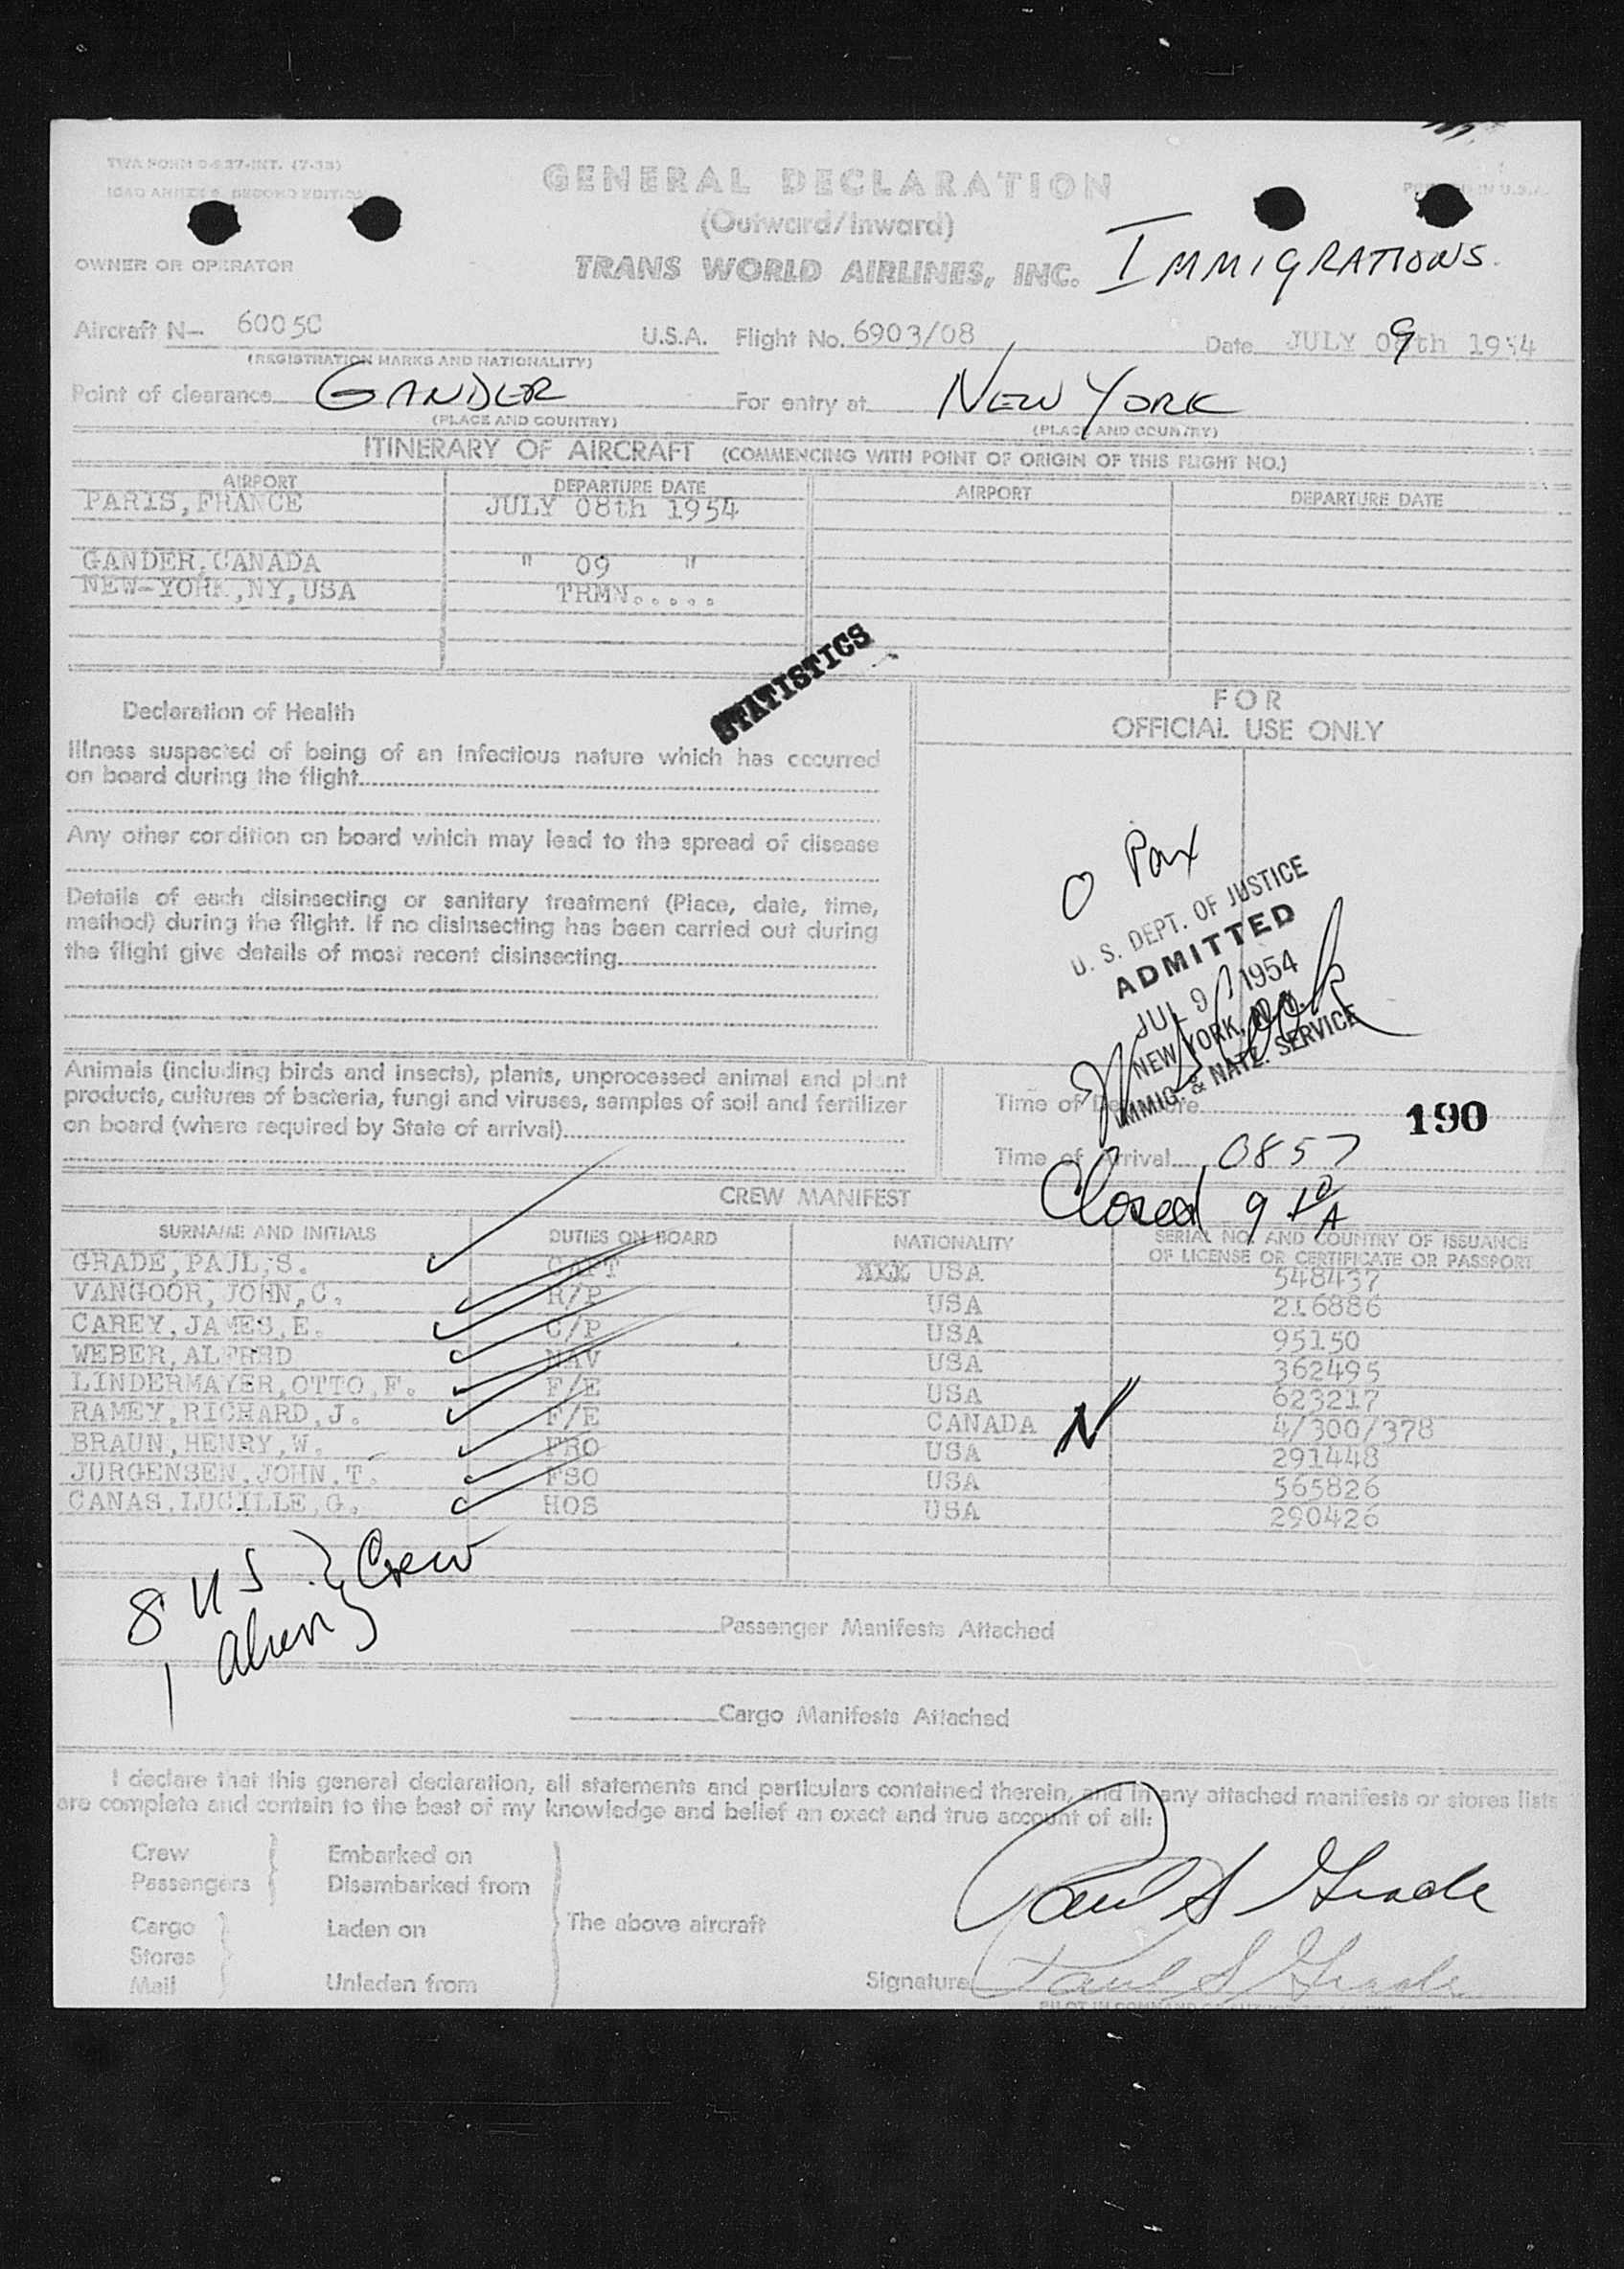 TWA FORM
GENERAL DECLARATION
(Outward/Inward)
OWNER OR OPERATOR
TRANS WORLD AIRLINES, INC.
IMMIGRATIONS.
Aircraft N— 6005C U.S.A. Flight No. 6903/08 Date JULY 9th 1954
(REGISTRATION MARKS AND NATIONALITY)
Point of clearance GANDER For entry at NEW YORK
(PLACE AND COUNTRY) (PLACE AND COUNTRY)
ITINERARY OF AIRCRAFT (COMMENCING WITH POINT OF ORIGIN OF THIS FLIGHT NO.)
AIRPORT DEPARTURE DATE AIRPORT DEPARTURE DATE
PARIS,FRANCE JULY 08th 1954
GANDER,CANADA " 09 "
NEW-YORK,NY,USA TRMN.....
STATISTICS
Declaration of Health
Illness suspected of being of an infectious nature which has occurred
on board during the flight
Any other condition on board which may lead to the spread of disease
Details of each disinsecting or sanitary treatment (Place, date, time,
method) during the flight. If no disinsecting has been carried out during
the flight give details of most recent disinsecting
FOR
OFFICIAL USE ONLY
0 Pax
U. S. DEPT. OF JUSTICE
ADMITTED
JUL 9 1954
NEW YORK, N. Y.
IMMIG. & NATZ. SERVICE
Animals (including birds and insects), plants, unprocessed animal and plant
products, cultures of bacteria, fungi and viruses, samples of soil and fertilizer
on board (where required by State of arrival)
Time of Departure
190
Time of Arrival 0857
Closed 9 10 A
CREW MANIFEST
SURNAME AND INITIALS DUTIES ON BOARD NATIONALITY SERIAL NO. AND COUNTRY OF ISSUANCE
OF LICENSE OR CERTIFICATE OR PASSPORT
GRADE,PAUL,S. CAPT XXX USA 548437
VANGOOR,JOHN,C. R/P USA 216886
CAREY,JAMES,E. C/P USA 95150
WEBER,ALFRED NAV USA 362495
LINDERMAYER,OTTO,F. F/E USA 623217
RAMEY,RICHARD,J. F/E CANADA N 4/300/378
BRAUN,HENRY,W. FRO USA 291448
JURGENSEN,JOHN,T. FSO USA 565826
CANAS,LUCILLE,G. HOS USA 290426
8 US } Crew
1 alien
Passenger Manifests Attached
Cargo Manifests Attached
I declare that this general declaration, all statements and particulars contained therein, and in any attached manifests or stores lists
are complete and contain to the best of my knowledge and belief an exact and true account of all:
Crew Embarked on
Passengers Disembarked from
Cargo Laden on The above aircraft
Stores
Mail Unladen from
Paul S Grade
Signature Paul S Grade